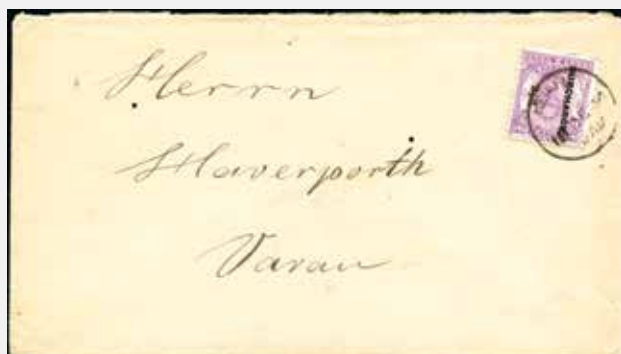 Herrn
Haverporth
Varau